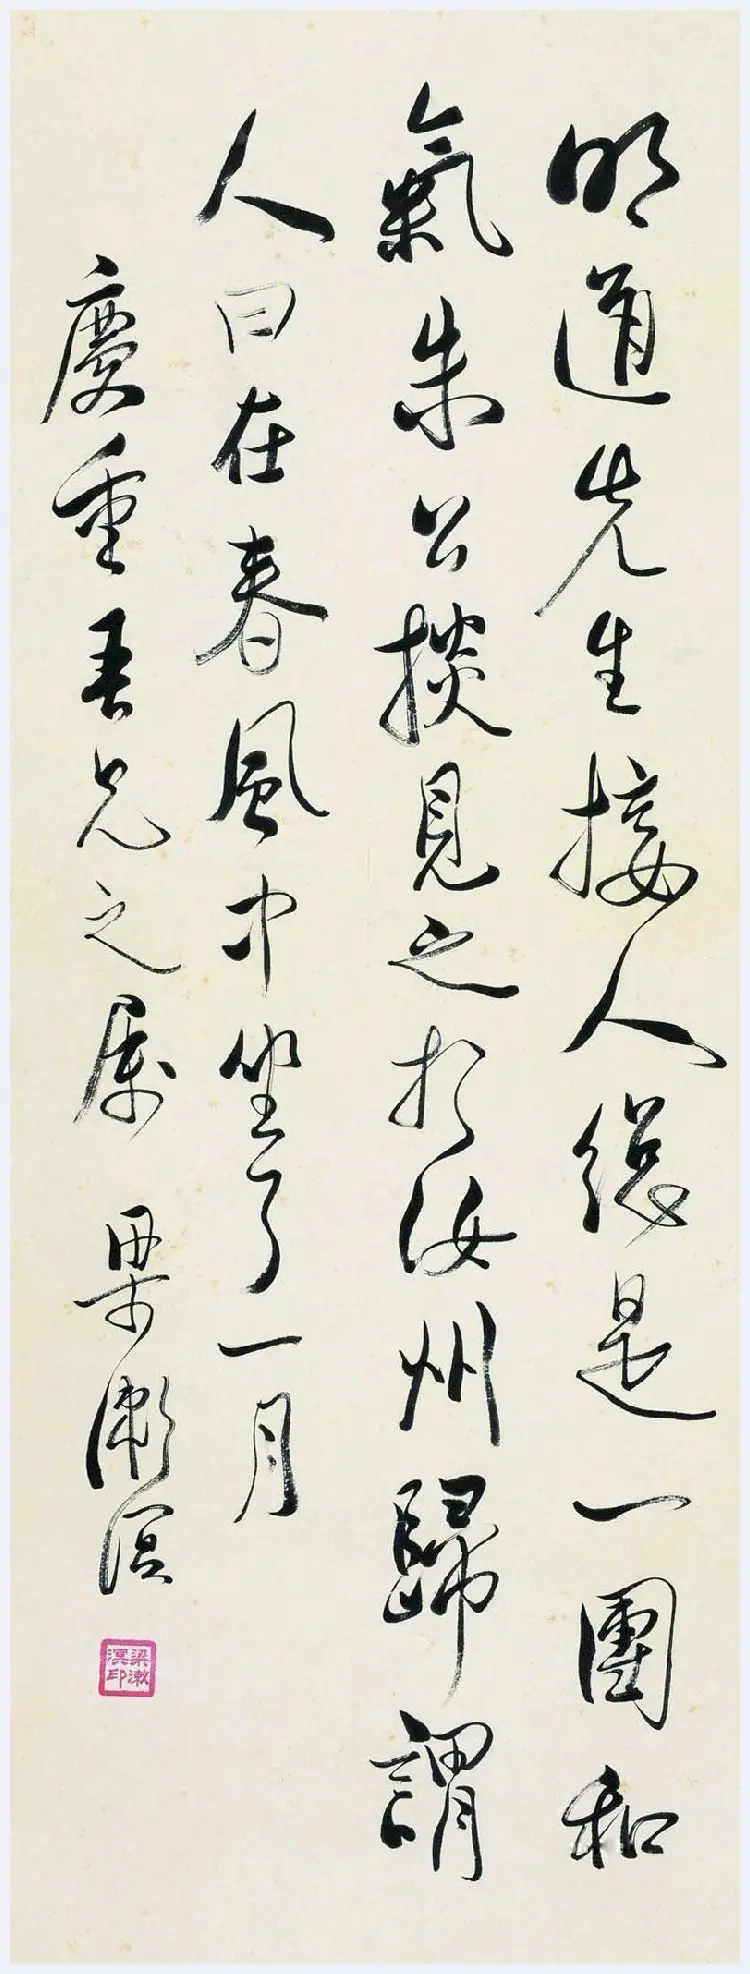 明道先生接人總是一團和
氣朱公掞見之於汝州歸謂
人曰在春風中坐了一月
慶重吾兄之屬 梁漱溟
梁漱溟印